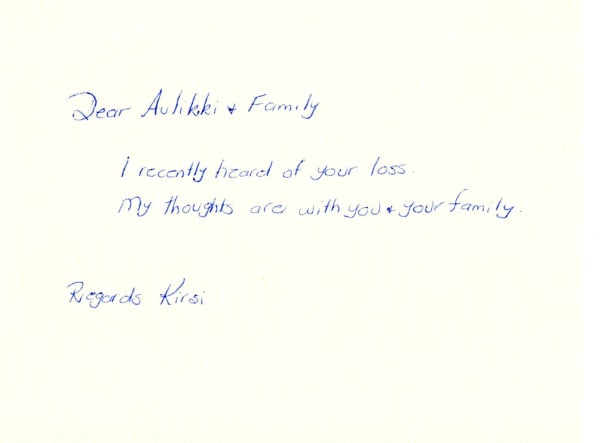 Dear Aulikki & Family
I recently heard of your loss.
My thoughts are with you & your family.
Regards Kirsi